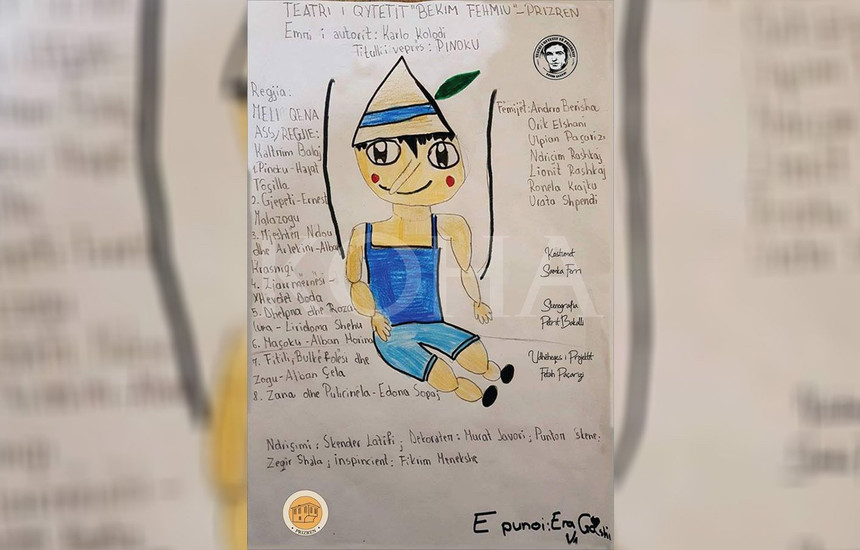 TEATRI I QYTETIT "BEKIM FEHMIU"-PRIZREN
Emni i autorit: Karlo Kolodi
Titulli i veprës: PINOKU
Regjia:
MELI QENA
ASS/REGJIE:
Kaltrim Balaj
1. Pinoku-Hajat
Tosilla
2. Gjepeti-Ernest
Malazogu
3. Mjeshtër Ndou
dhe Arlekini-Alba
Krasniqi
4. Ziarrmernesi-
Xhevdet Doda
5. Dhelpna dhe Roza
Lura - Liridoma Shehu
6. Maçoku-Alban Morina
7. Fitili, Bulkëfolësi dhe
Zogu-Alban Çela
8. Zana dhe Pulirinela-Edona Sopaj
Fëmijët: Andrro Berisha
Orik Elshani
Ulpian Paçarizi
Ndriçim Rashkaj
Lionit Rashkaj
Ronela Krajka
Urata Shpendi
Kostumet
Samka Ferri
Skenografia
Petrit Bakalli
Udhëheqës i Projektit
Fetah Paçarizi
Ndriçimi: Skender Latifi; Dekoratën: Murat Javori; Puntor Skene:
Zeqir Shala; inspincient: Fikrim Menekshe
KOHA
PRIZREN
E punoi: Era
V₁